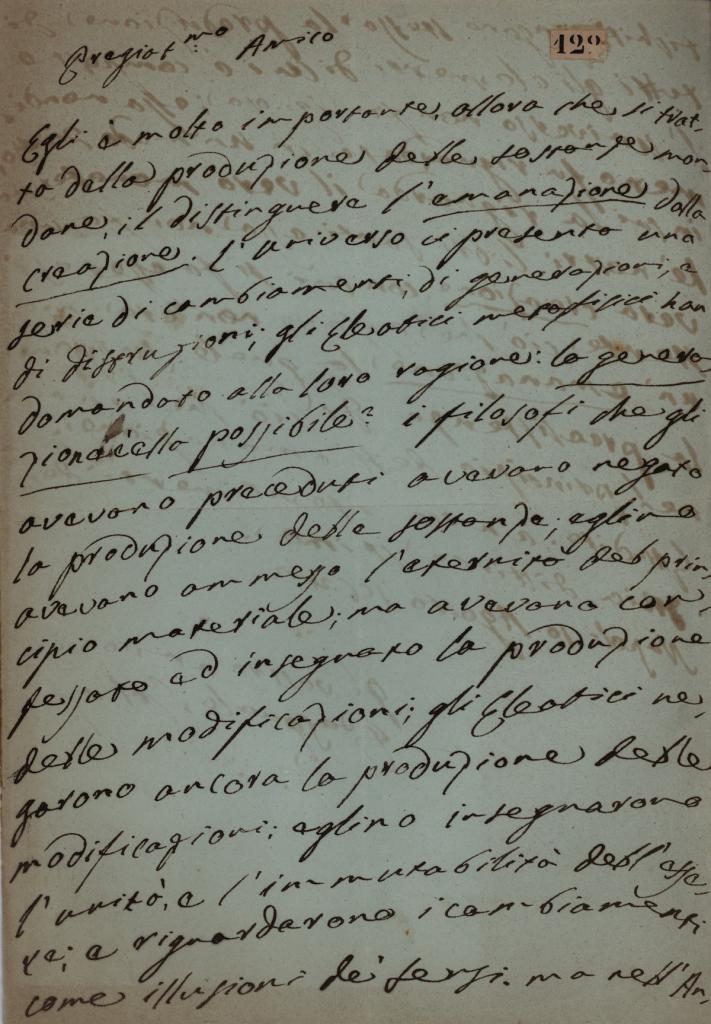 Pregiat.mo Amico
12º
Egli è molto importante, allora che si trat-
ta della produzione delle sostanze mon-
dane, il distinguere l'emanazione dalla
creazione. l'universo ci presenta una
serie di cambiamenti, di generazioni, e
di distruzioni; gli Eleatici metafisici han
domandato alla loro ragione: la genera
zione è ella possibile? i filosofi che gli
avevano preceduti avevano negato
la produzione delle sostanze; eglino
avevano ammesso l'eternità del prin-
cipio materiale; ma avevano con-
fessato ed insegnato la produzione
delle modificazioni; gli Eleatici ne-
garono ancora la produzione delle
modificazioni; eglino insegnarono
l'unità, e l'immutabilità dell'esse-
re; e riguardarono i cambiamenti
come illusioni de' sensi. ma nell'An-